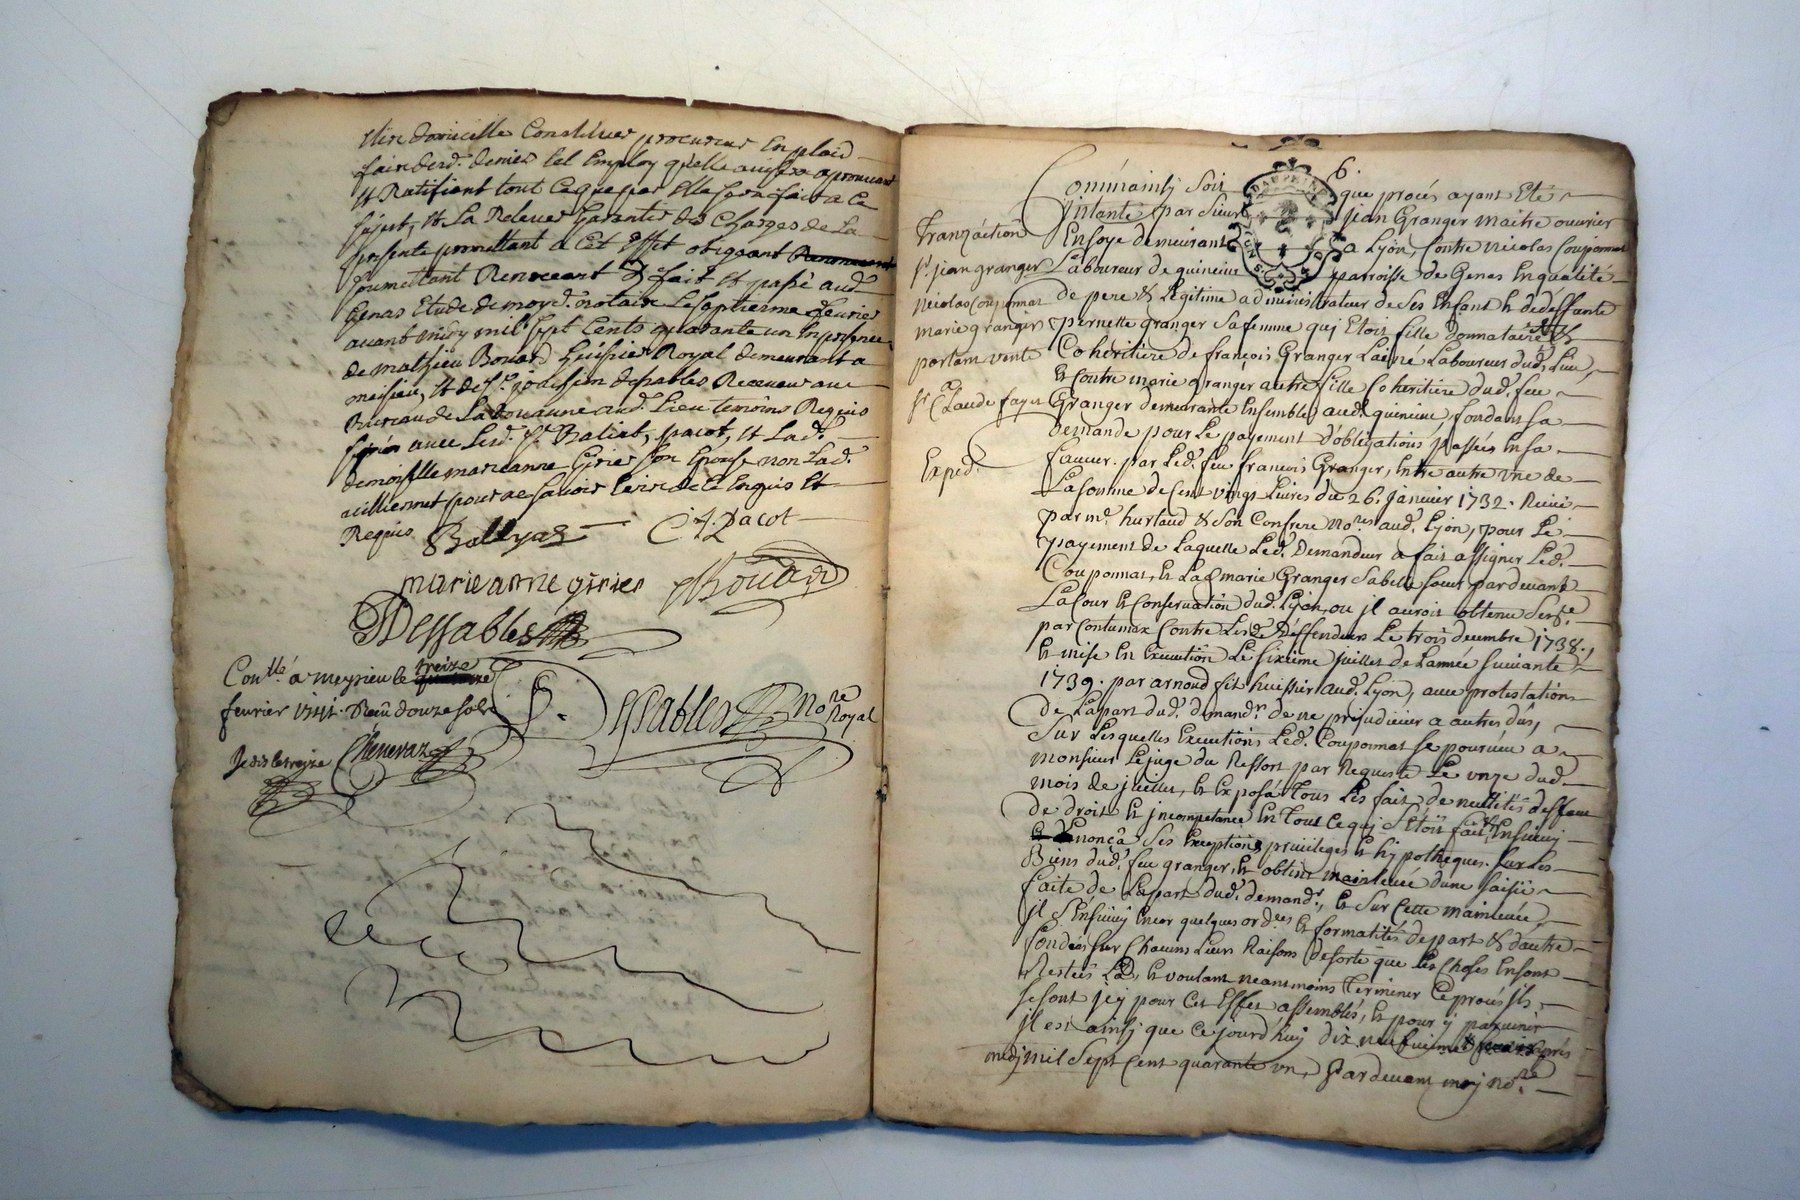 Elire domicille Constituer procureur En plaid
faire desd. deniers tel Employ qu'elle avisera aprouvant
Et Ratifiant tout ce que par Elle sera fait a ce
sujet, Et La Relever Garantir des Charges de La
presente promettant a Cet Effet obligeant
soumettant Renonceant & fait et passé aud.
Genas Etude de moyd. notaire Le septieme fevrier
avant midy mil sept Cents quarante un En presence
de mathieu Bouard huissier Royal demeurant a
meisieu, Et de Sr. joassein desables Receveur au
Bureau de La douanne aud. Lieu temoins Requis
signés avec Lesd. Sr. Baliat, pacot, Et Lad.
demoiselle marianne Girier son Epouse non Lad.
pour ne savoir Ecrire de ce Enquis Et
Requis
C. Pacot
marie anne girier
Bouard
Dessables
Conllé a meyzieu le treize
fevrier 1741. Reçu douze sols
Je dis le treize Chenevaz
Dessables Nore Royal
6.
Comm'ainsy soit que procés ayant Eté
jntanté par Sieur jean Granger maitre ouvrier
En soye demeurant a Lyon, Contre nicolas Couponnat
Laboureur de quincieu parroisse de Genas En qualité
de pere & Legitime administrateur de ses Enfant & de deffante
pernette granger sa femme quj Etoit fille donnataire &
Coheritiere de françois Granger Lainé Laboureur dud. Lieu,
Et Contre marie granger autre fille Coheritiere dud. feu
Granger demeurante Ensemble aud. quincieu, fondant sa
demande pour Le payement d'obligations passées En sa
faveur par Led. feu francois Granger, Entre autre une de
La somme de Cent vingt Livres du 26. janvier 1732. Reçue
par me. hurtaud & son Confrere nores. aud. Lyon, pour Le
payement de Laquelle Led. demandeur a fait assigner Led.
Couponnat, & Lad. marie Granger sa belle soeur pardevant
La Cour & Conservation dud. Lyon ou jl auroit obtenu sentce.
par Contumax Contre Lesd. Deffendeurs Le trois decembre 1738.,
& mise En Execution Le sixieme juillet de L'année suivante
1739. par arnoud fit huissier aud. Lyon, avec protestations
de La part dud. demandr. de ne prejudicier a autres dûs,
sur Lesquelles Executions Led. Couponnat se pourveu a
monsieur Le juge du Ressort par Requeste Le onze dud.
mois de juillet, & Exposa Tous Les fait de nullités deffaut
de droit & jncompetance En Tout Ce quj s'Etoit fait, Ensuivy
Enonça ses Exceptions privileges & hypotheques sur Les
Biens dud. feu granger, & obtint mainlevée d'une saisie
faite de La part dud. demandr., & sur Cette mainlevée
jl s'Ensuivy Encor quelques ordces. & formalités de part & d'autre
fondées sur Chacuns Leurs Raisons de sorte que Les Choses En sont
Restées Là, & voulant neantmoins Terminer Ce procés jls
se sont jcy pour Cet Effet assemblés, & pour y parvenir
jl est ainsy que Cejourd'huy dix neufvieme fevrier aprés
midj mil sept Cent quarante un, Pardevant moy nore.
Tranzaction
Sr. jean granger
nicolas Couponnat
marie granger
portant vente
a
Sr. Claude fayet
Exped.